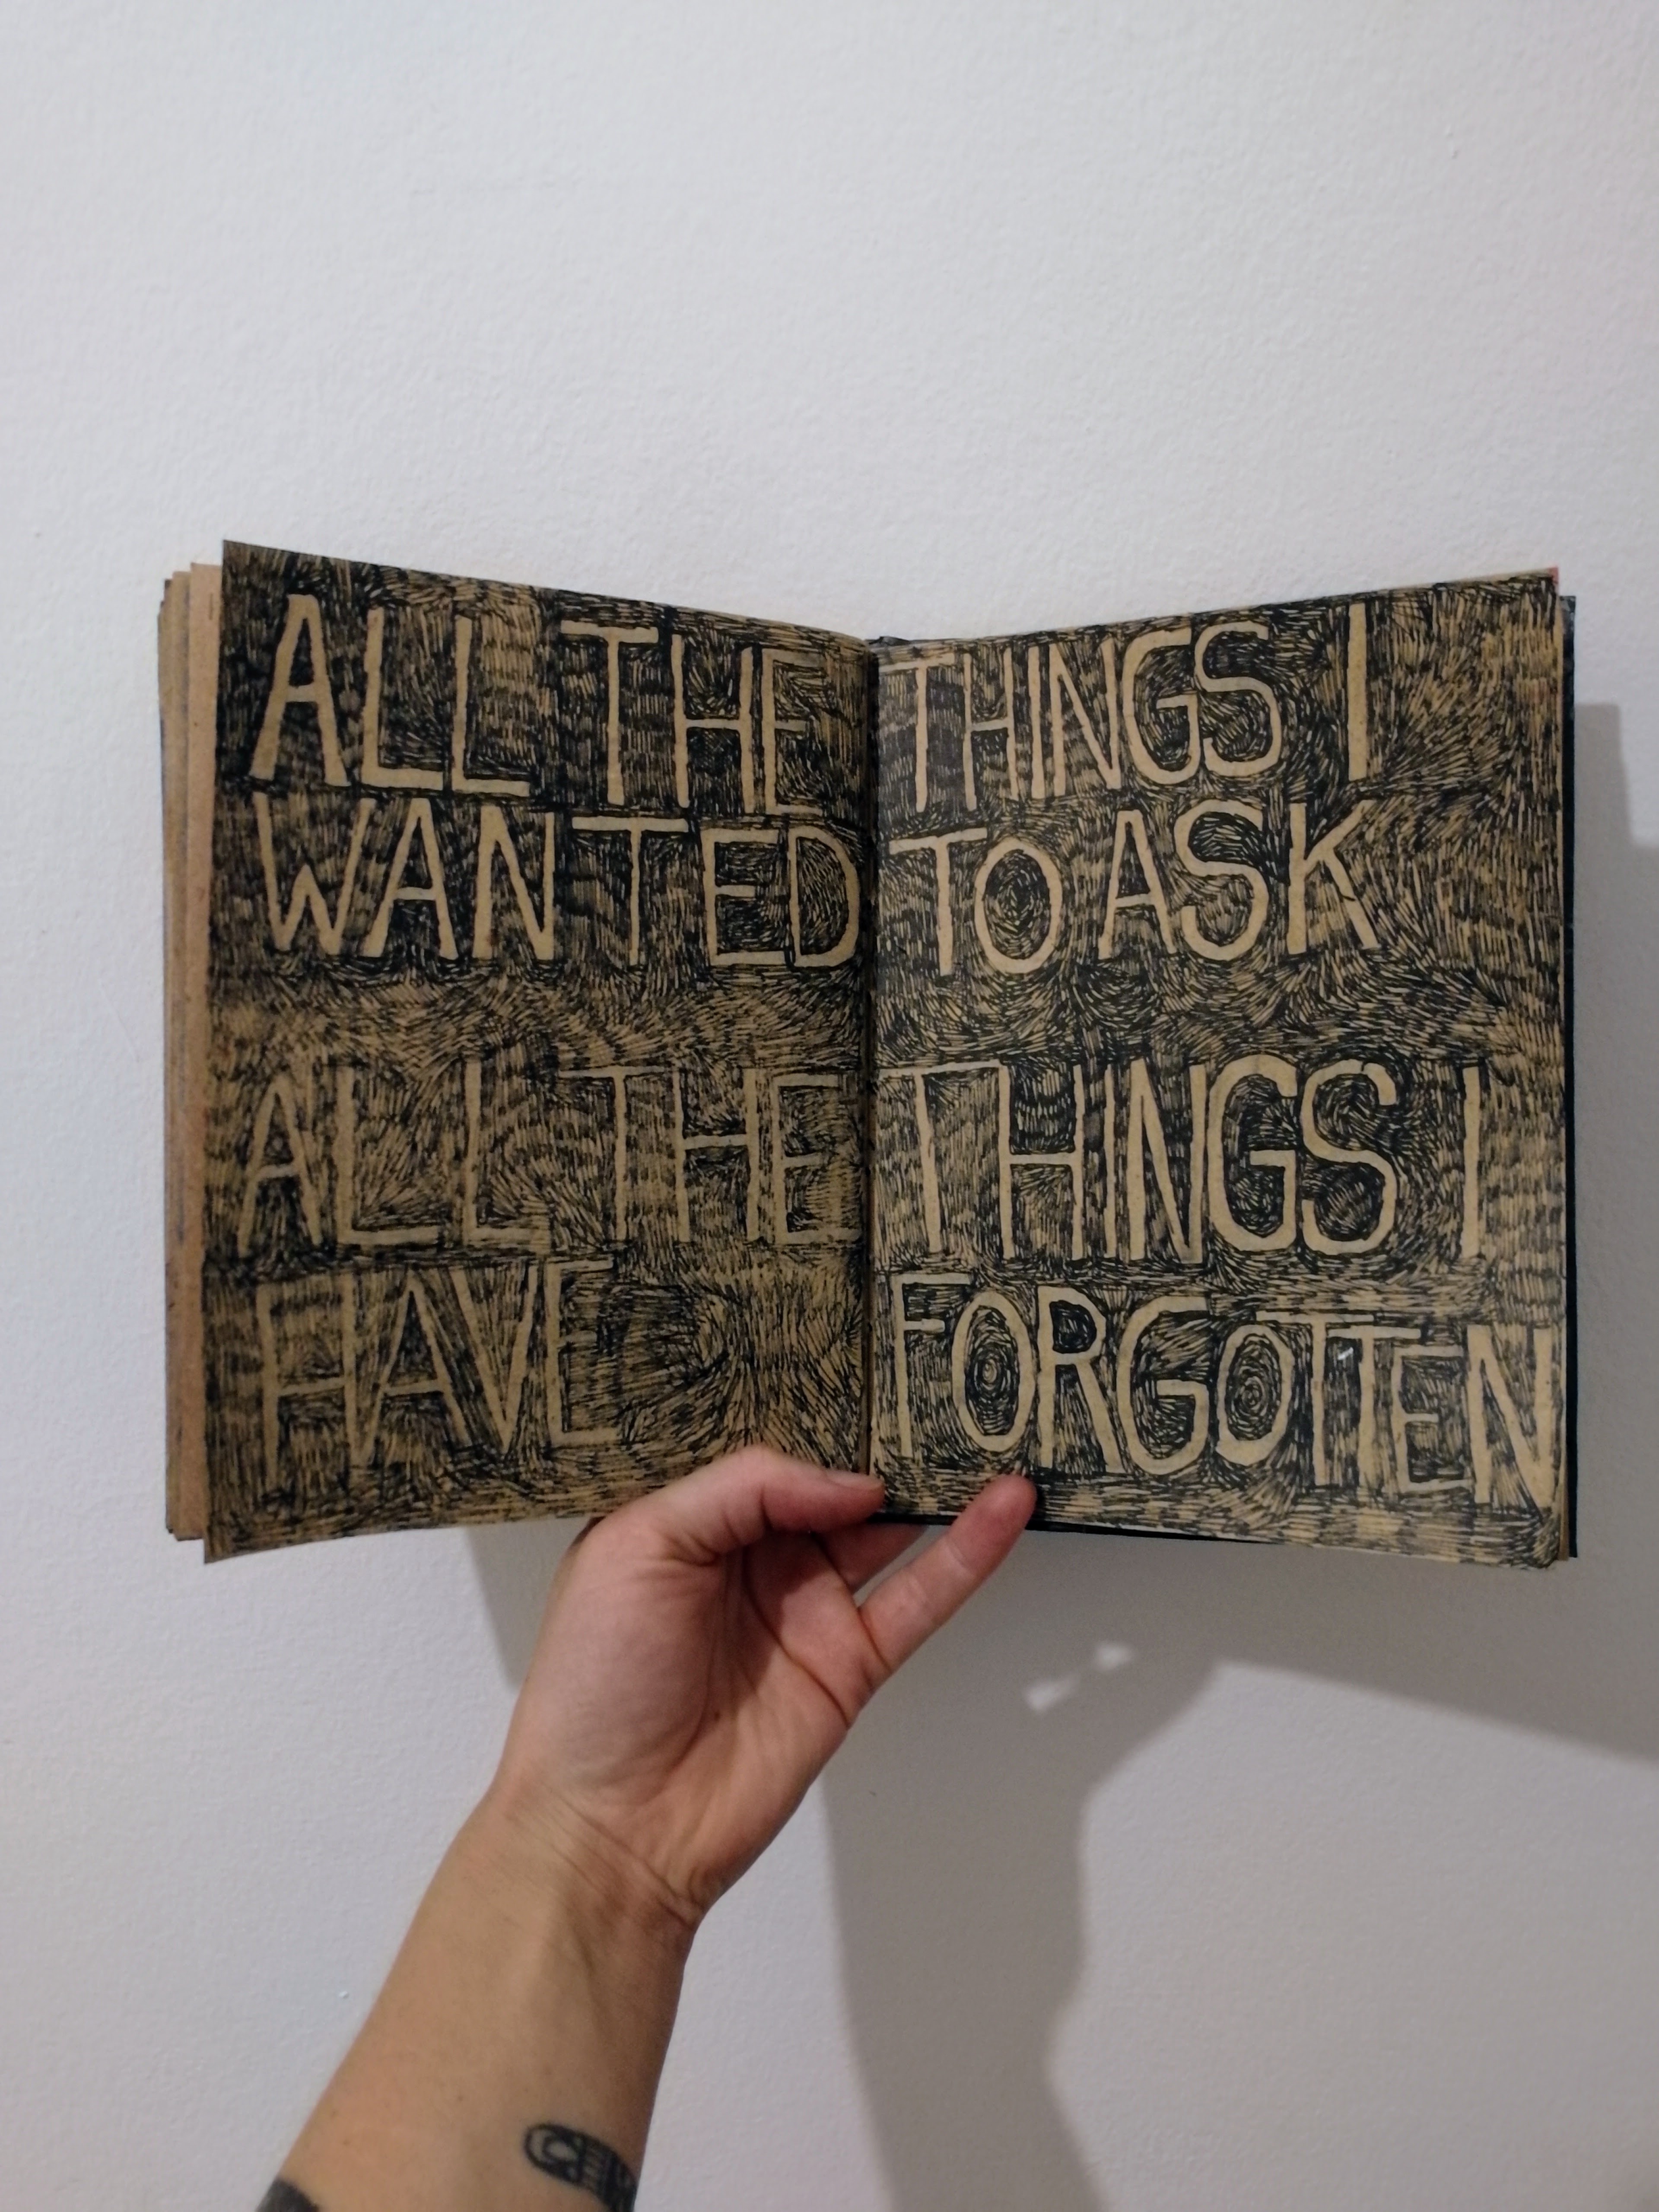 ALL THE THINGS I
WANTED TO ASK
ALL THE THINGS I
HAVE FORGOTTEN